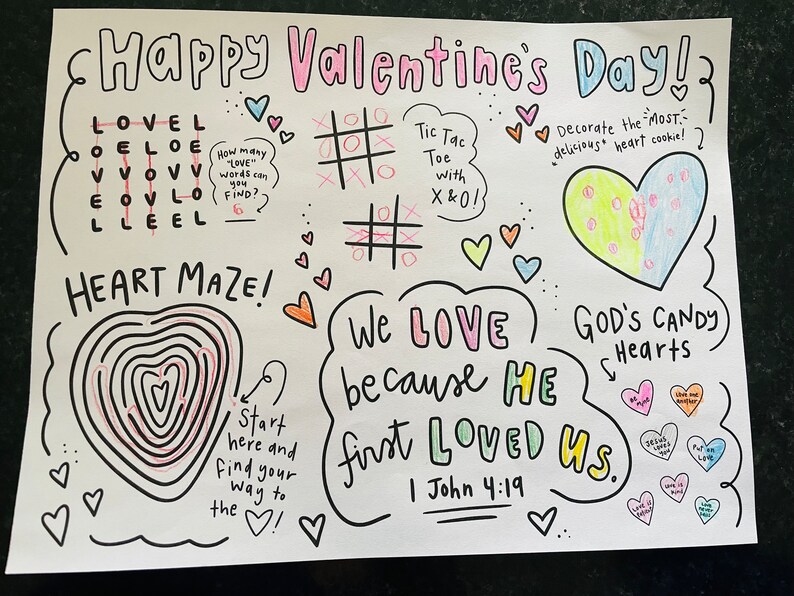 Happy Valentine's Day!
L O V E L
O E L O E
V V O V V
E O V L O
L L E E L
How many
"LOVE"
words can
you
FIND?
6
X O O
X O X
X X O
Tic Tac
Toe
with
X & O!
O X
X X X
O O
Decorate the "MOST"
*delicious* heart cookie!
HEART MAZE!
Start
here and
find your
way to
the !
We LOVE
because HE
first LOVED US.
1 John 4:19
GOD'S CANDY
Hearts
Be
Mine
Love one
another
Jesus
Loves
you
Put on
Love
Love is
kind
Love is
Love
never
fails